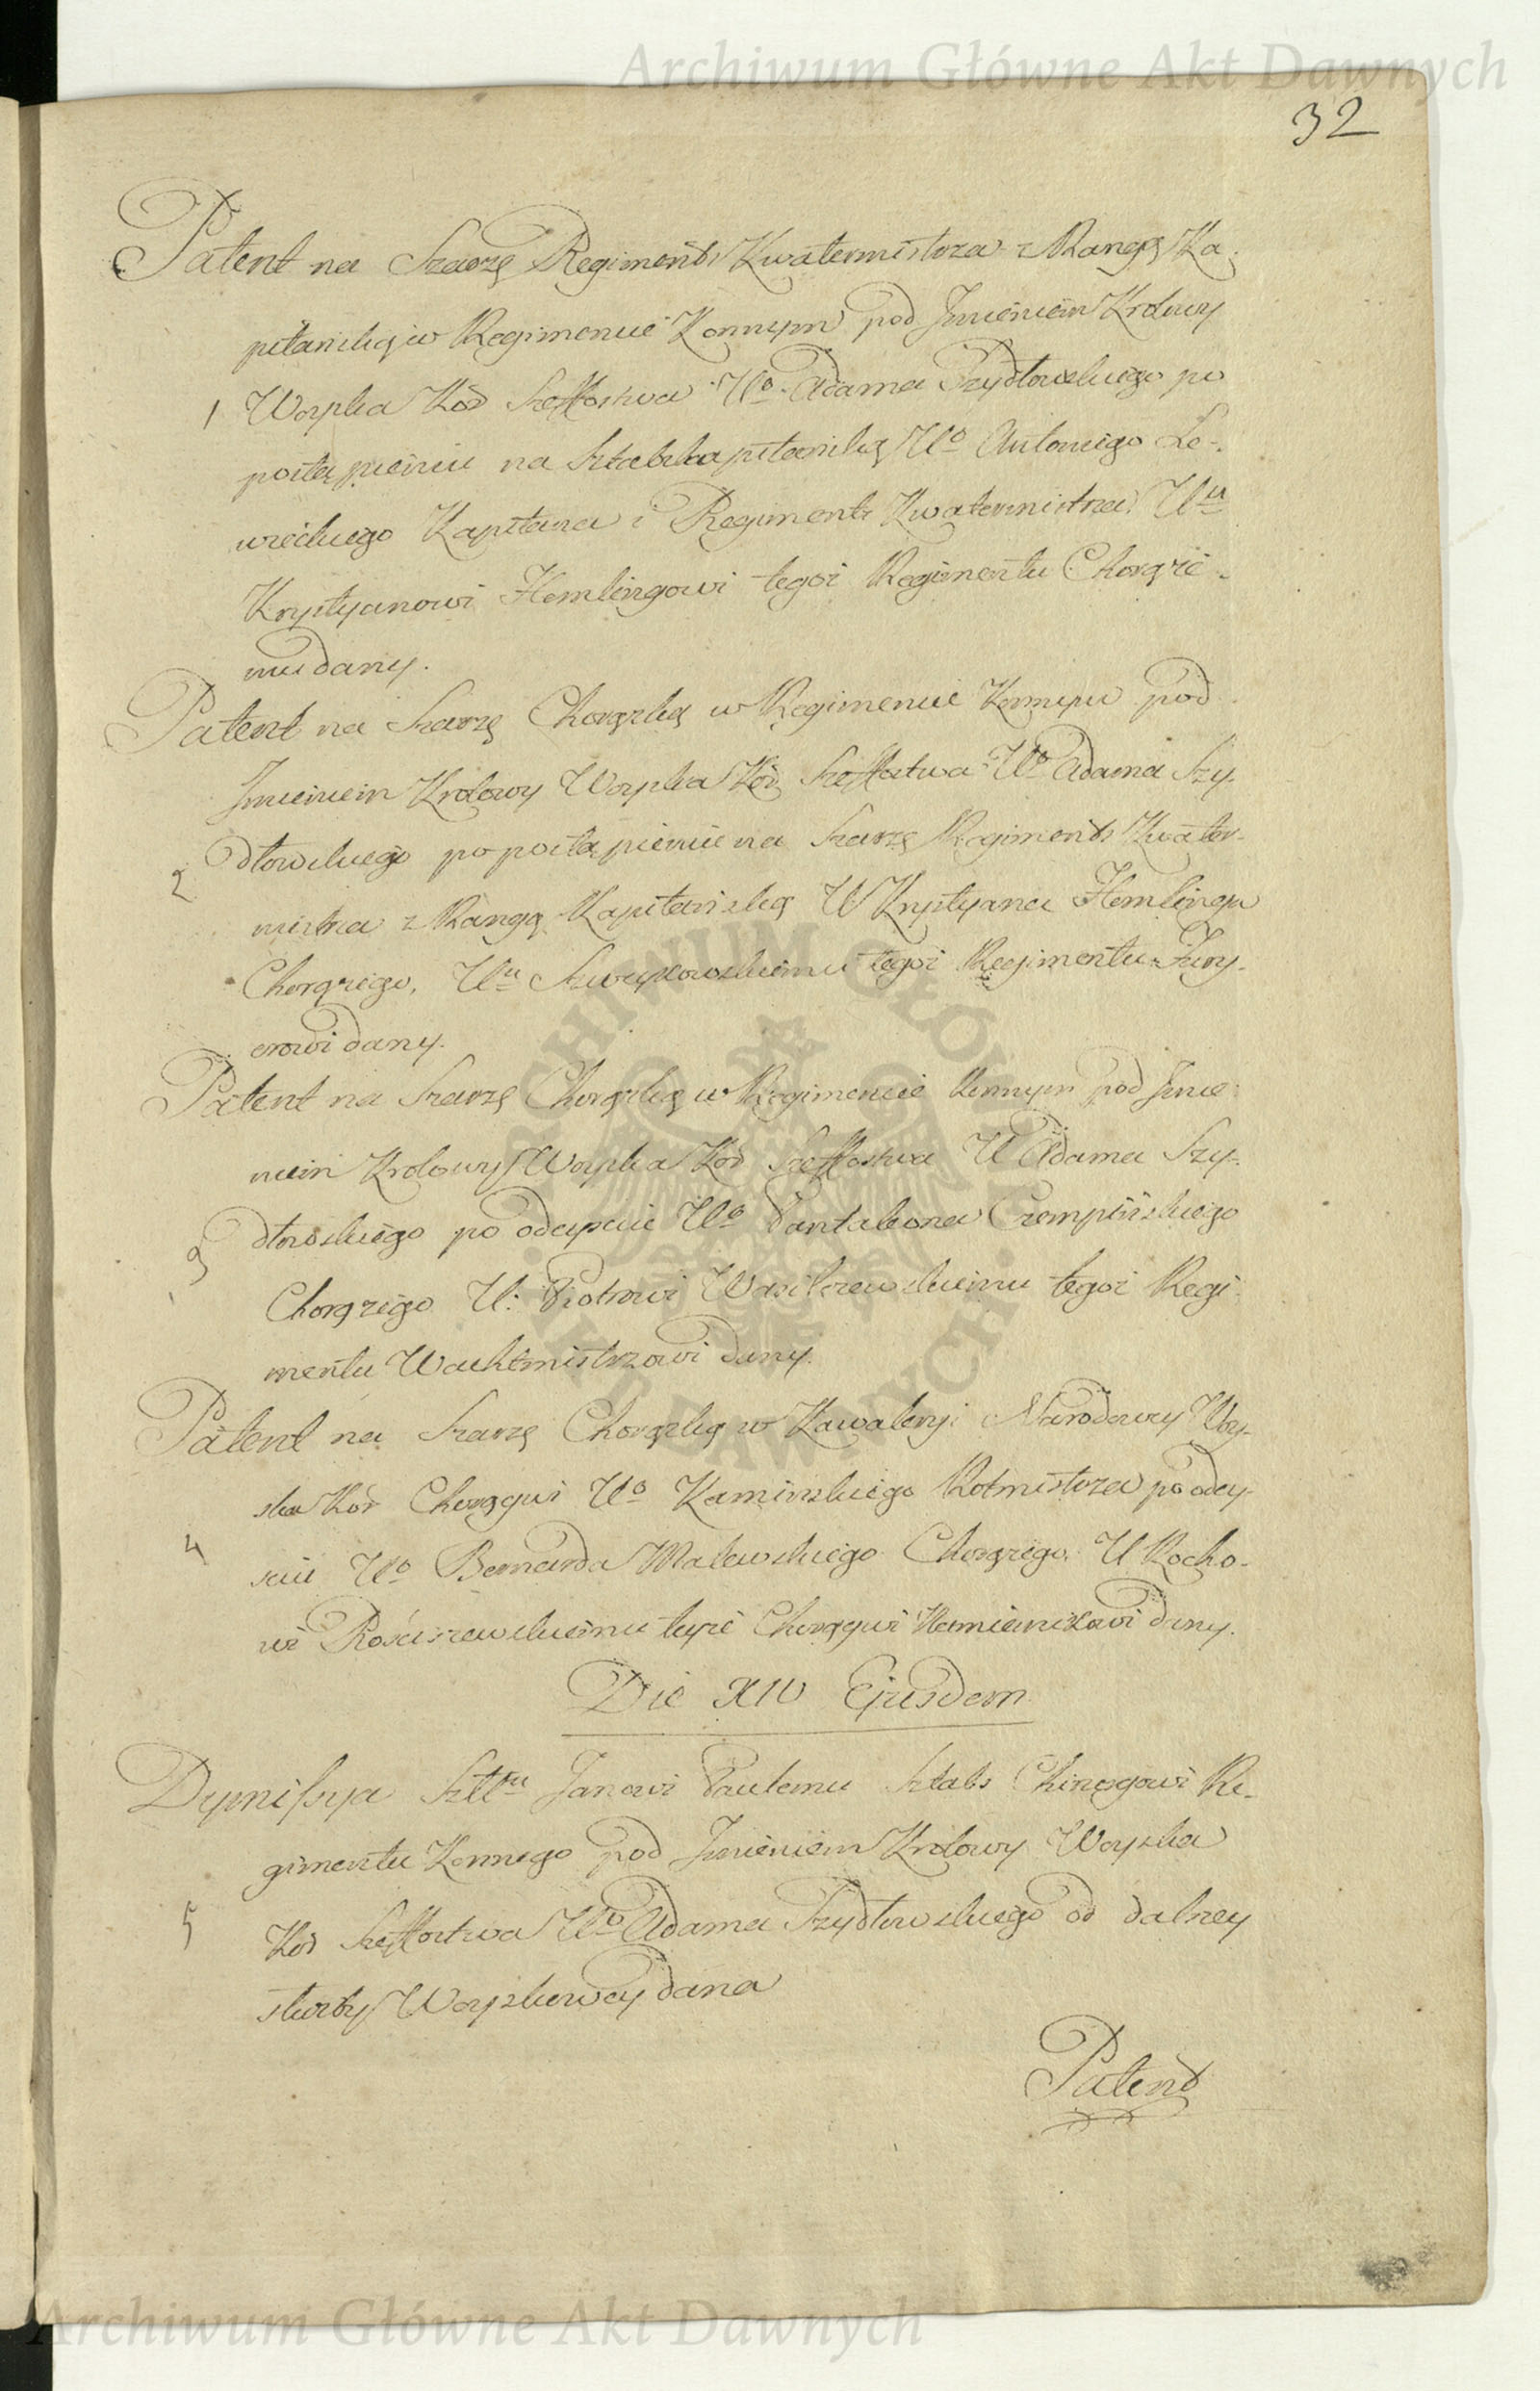 Archiwum Główne Akt Dawnych
32
Patent na Szarżę Regiments Kwatermistrza z Rangą Ka
pitańską w Regimencie Konnym pod Jmieniem Krolowy
1 Woyska Kor̃ Szeffostwa Uo Adama Szydłowskiego po
postąpieniu na Sztabskapitańską Uo Antoniego Le-
wickiego Kapitana i Regiments Kwatermistrza Uu
Krystyanowi Hemlingowi tegoż Regimentu Chorąże-
mu dany.
Patent na Szarżę Chorązką w Regimencie Konnym pod
Jmieniem Krolowy Woyska Kor̃ Szeffostwa Uo Adama Szy-
2 dłowskiego po postąpieniu na Szarżę Regiments Kwater-
mistrza z Rangą Kapitańską U Krystyana Hemlinga
Chorążego, Uu tegoż Regimentu Fury-
erowi dany.
Patent na Szarżę Chorązką w Regimencie Konnym pod Jmie
niem Krolowy Woyska Kor̃ Szeffostwa U Adama Szy-
3 dłowskiego po odeyściu Uo Pantaleona Czempińskiego
Chorążego U: Piotrowi Wasilewskiemu tegoż Regi
mentu Wachtmistrzowi dany.
Patent na Szarżę Chorązką w Kawaleryi Narodowey Woy-
ska Kor̃ Chorągwi Uo Kaminskiego Rotmistrza po odey-
4 sciu Uo Bernarda Malewskiego Chorążego U Rocho-
wi Rościszewskiemu teyże Chorągwi Namiesnikowi dany.
Die XIV Ejusdem
Dymissya Szltu Janowi Paulemu Sztabs Chirurgowi Re-
gimentu Konnego pod Jmieniem Krolowy Woyska
5 Kor̃ Szeffostwa Uo Adama Szydłowskiego od dalszey
służby Woyskowey dana
Patent
ARCHIWUM GŁÓWNE AKT DAWNYCH
Archiwum Główne Akt Dawnych